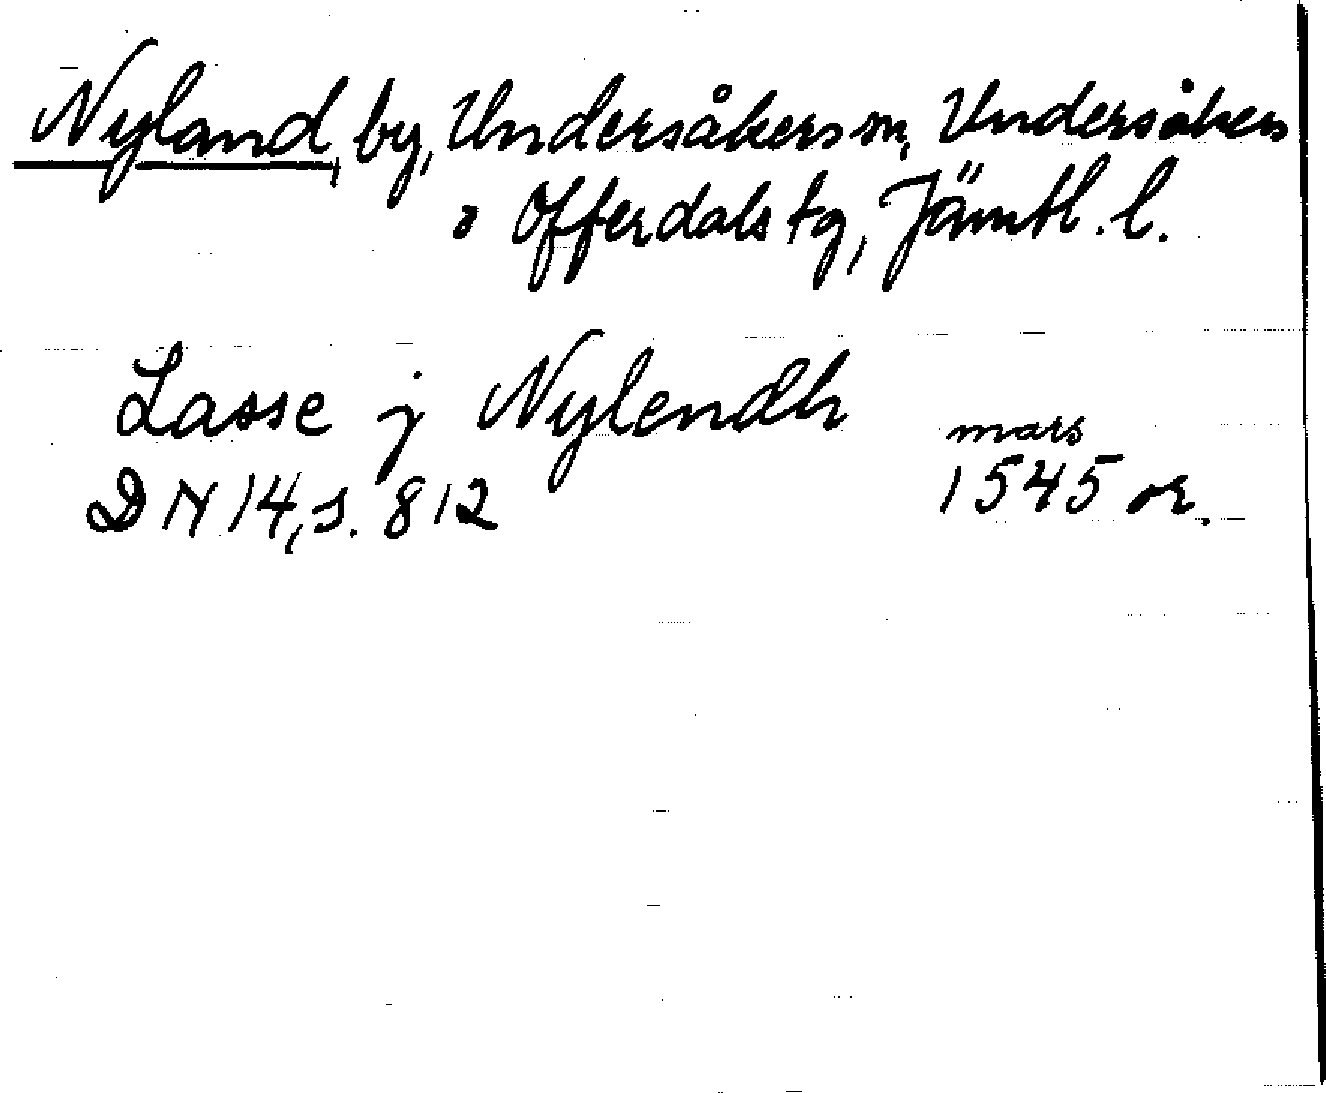 Nyland, by, Undersåkers sn, Undersåkers
o Offerdals tg, Jämtl. l.
Lasse j Nylendh
mars
DN 14, s. 812 1545 or.